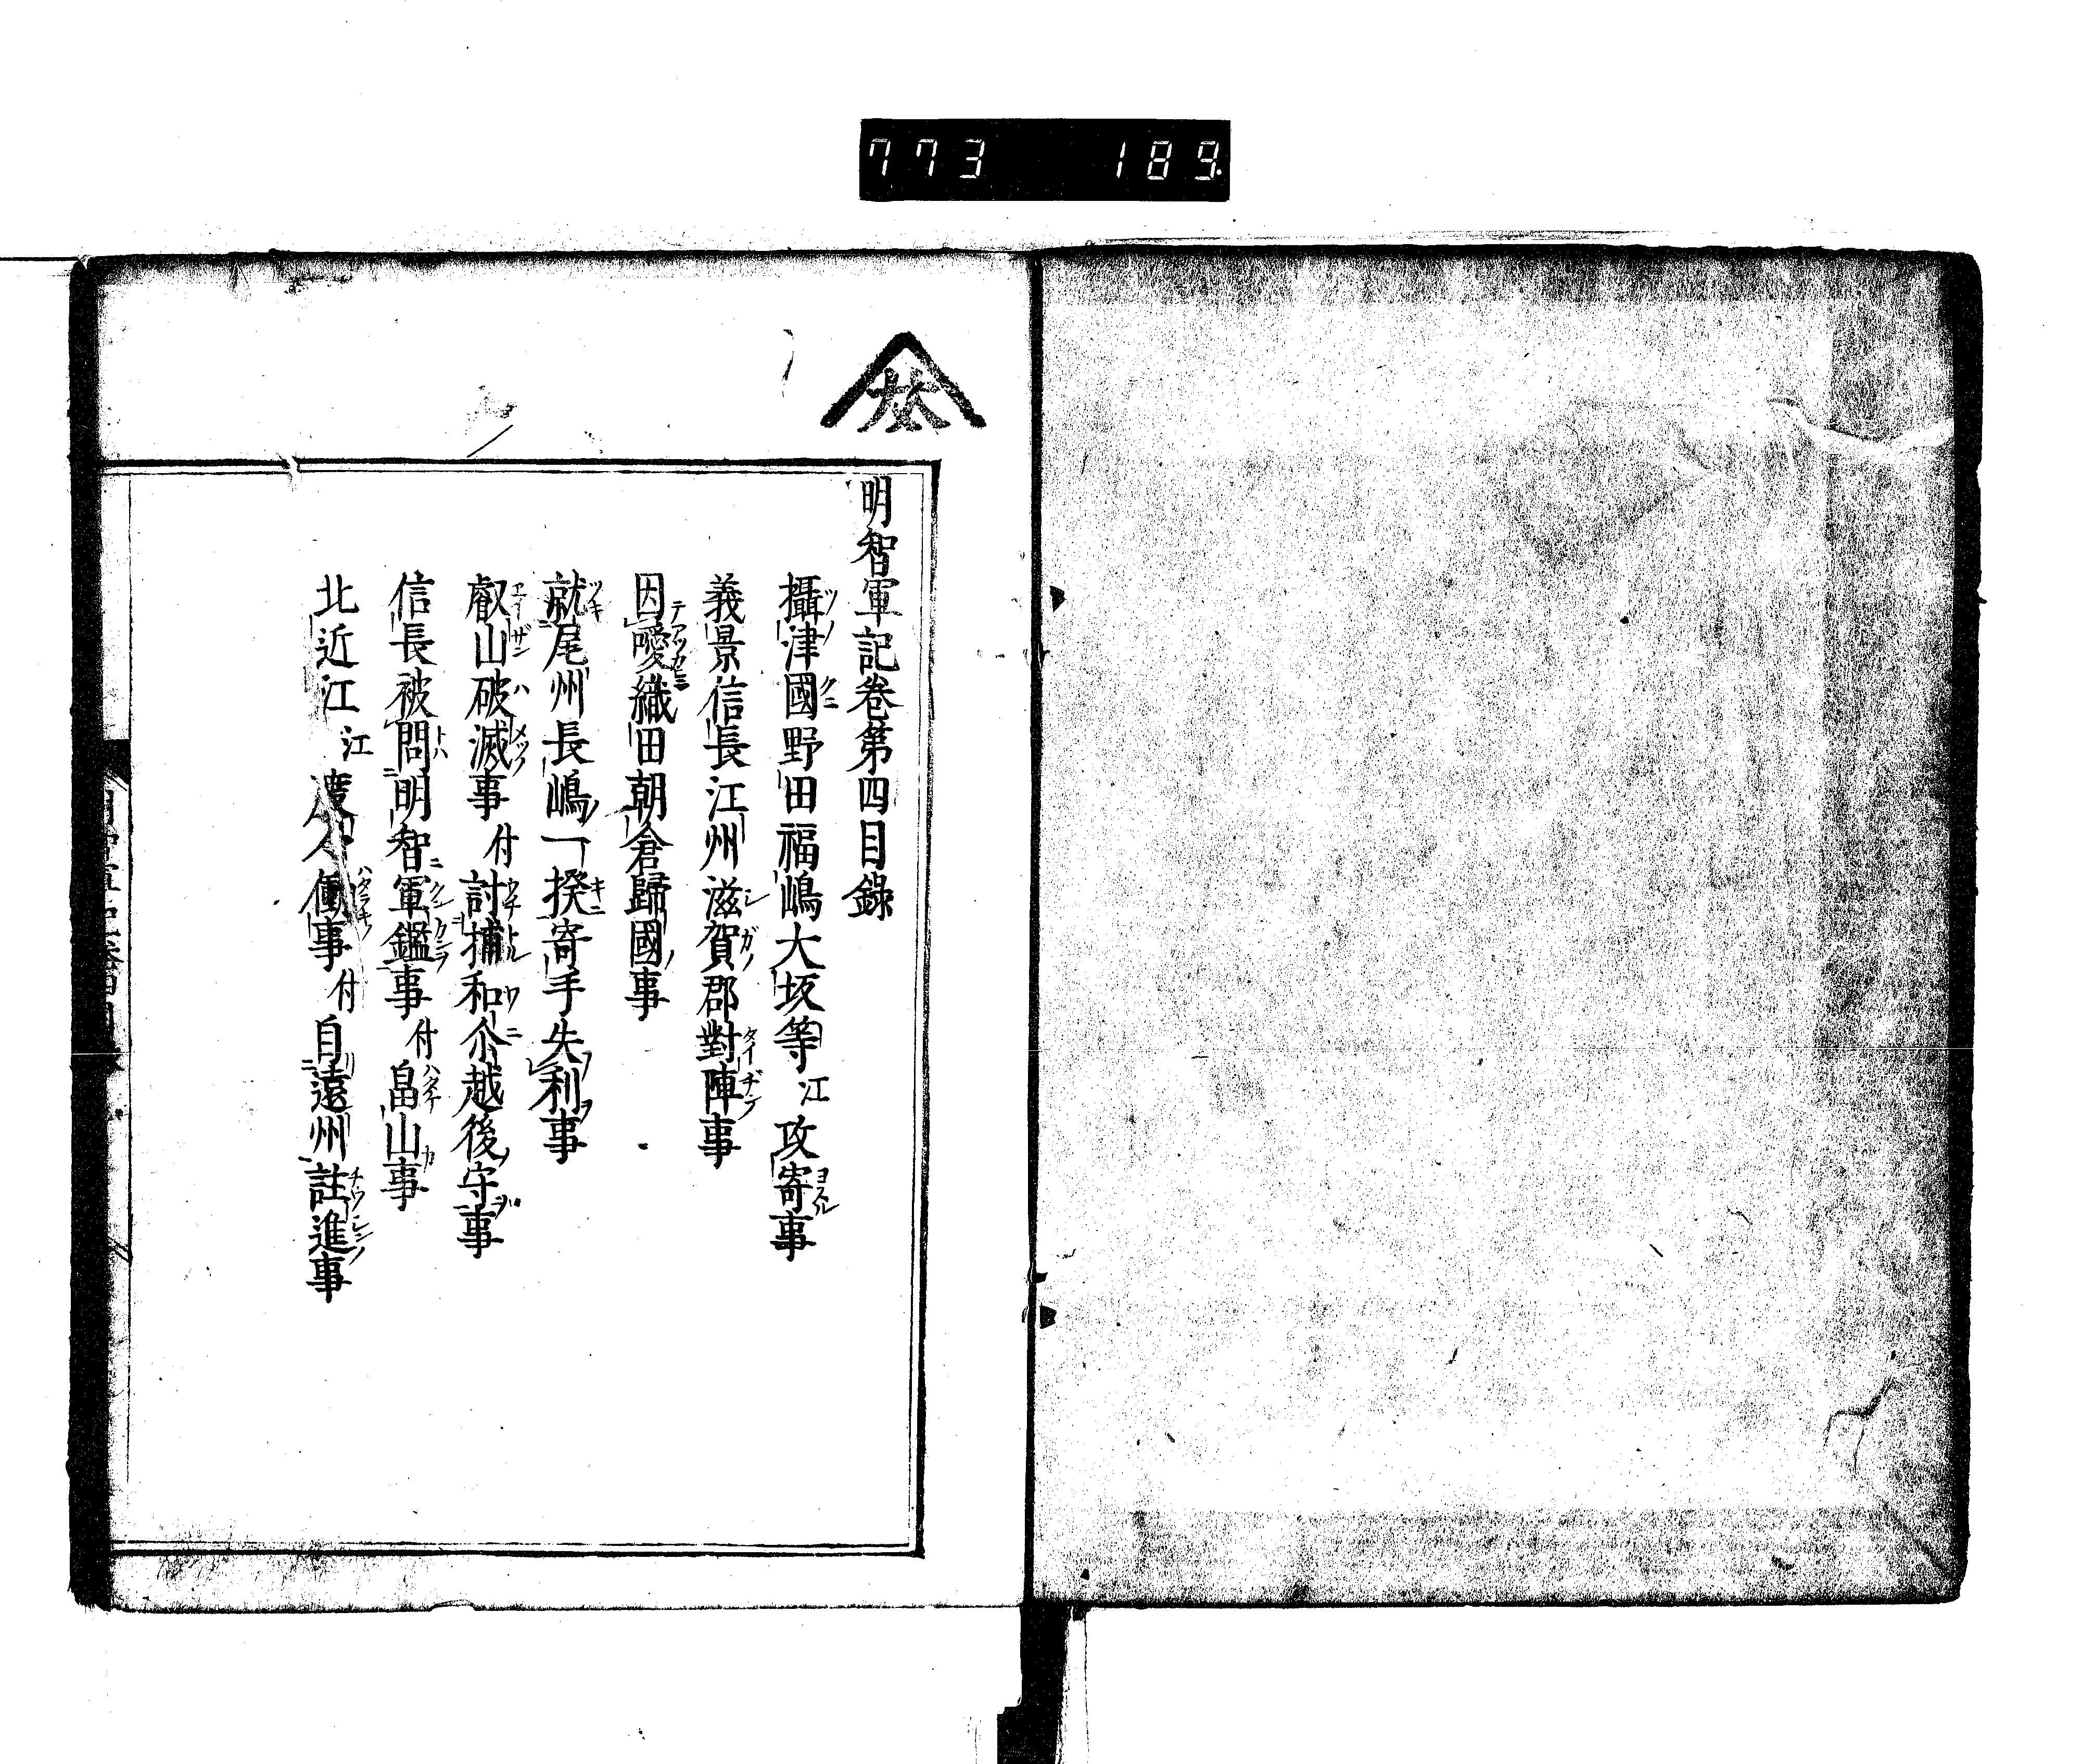 773 189
林
明智軍記卷第四目錄
攝津國野田福嶋大坂等江攻寄事
義景信長江州滋賀郡對陣事
因噯織田朝倉歸國事
就尾州長嶋一揆寄手失利事
叡山破滅事付討捕和介越後守事
信長被問明智軍鑑事付畠山事
北近江江 働事付自遠州註進事